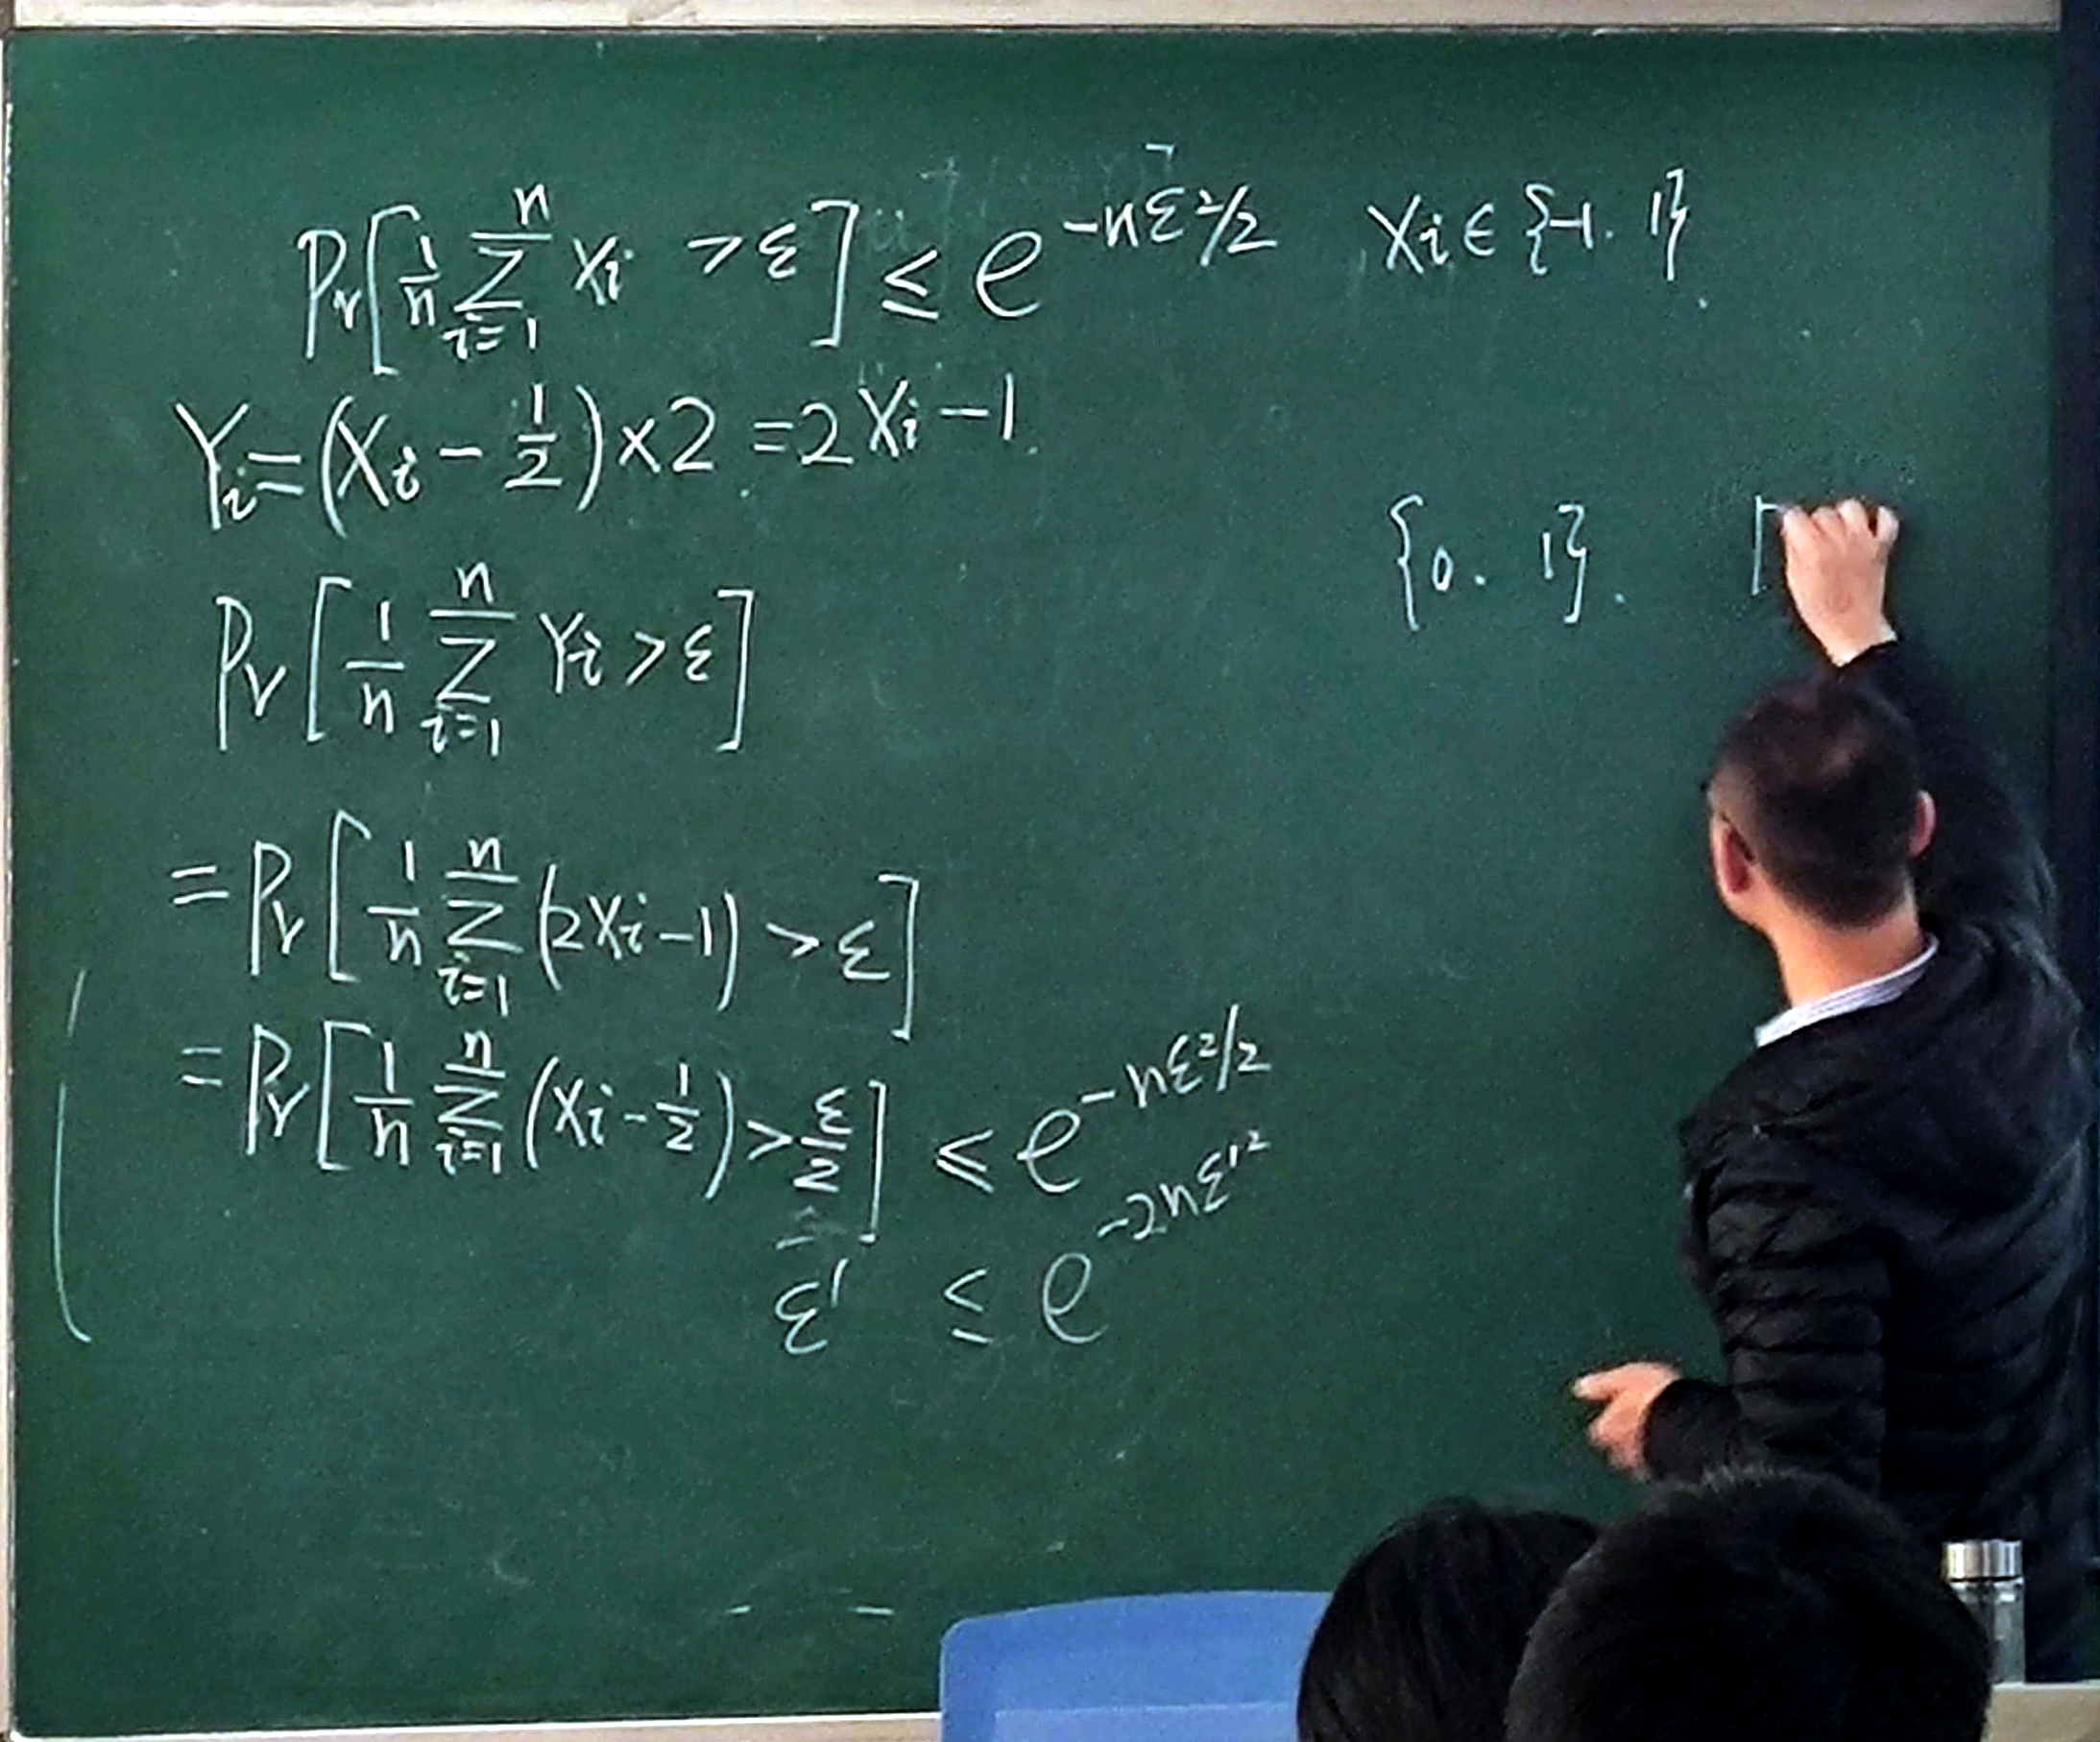 Pr[1/n ∑_{i=1}^{n} Xi > ε] ≤ e^{-nε²/2} Xi ∈ {-1. 1}.
Yi = (Xi - 1/2) × 2 = 2Xi - 1.
{0. 1}.
Pr[1/n ∑_{i=1}^{n} Yi > ε]
= Pr[1/n ∑_{i=1}^{n} (2Xi - 1) > ε]
= Pr[1/n ∑_{i=1}^{n} (Xi - 1/2) > ε/2] ≤ e^{-nε²/2}
ε' ≤ e^{-2nε'²}